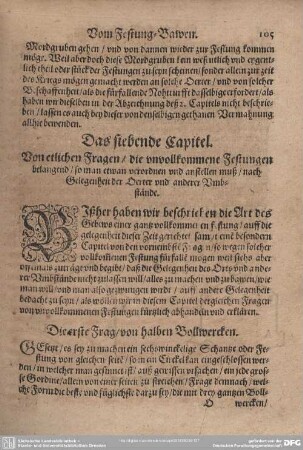 Vom Festung-Bawen. 105
Mordgruben gehen / vnd von dannen wieder zur Festung kommen
möge. Weil aber doch diese Mordgruben kein weßentlich vnd eygent-
lich theil oder stück der Festungen zu seyn scheinen / sonder allein zur zeit
des Kriegs mögen gemacht werden an solche Oerter / vnd von solcher
Beschaffenheit / als die fürfallende Nohtturfft dasselbige erfordert / als
haben wir dieselben in der Abzeichnung deß 2. Capitels nicht beschrie-
ben / lassen es auch bey dieser von denselbigen gethanen Vermahnung
allhie bewenden.
Das siebende Capitel.
Von etlichen Fragen / die vnvollkommene Festungen
belangend / so man etwan verordnen vnd anstellen muß / nach
Gelegenheit der Oerter vnd anderer Vmb-
stände.
Bißher haben wir beschrieben die Art des
Gebews einer gantz vollkommenen Festung / auff die
gelegenheit dieser Zeit gerichtet / samt
Capitel von den
vollkommenen Festung fürfall mögen weil siehs aber
offtmals zuträgt vnd begibt / daß die Gelegenheit des Orts vnd ande-
rer Vmbstände nicht zulassen will / alles zu machen vnd zu bawen / wie
man will / vnd man also gezwungen wird / auff andere Gelegenheit
bedacht zu seyn / als wollen wir in diesem Capitel dergleichen Fragen
von vnvollkommenen Festungen kürtzlich abhandeln vnd erklären.
Die erste Frag / von halben Bollwercken.
GEsetzt / es sey zu machen ein sechswinckelige Schantze oder Fe-
stung von gleichen seiten / so in ein Circkel kan eingeschlossen wer-
den / in welcher man gesinnet ist / auß gewissen vrsachen / ein jede gros-
se Gordine / allein von einer seiten zu streichen / Fragt demnach / wel-
che Form die best / vnd füglichste darzu sey / die mit drey gantzen Boll-
O wercken /